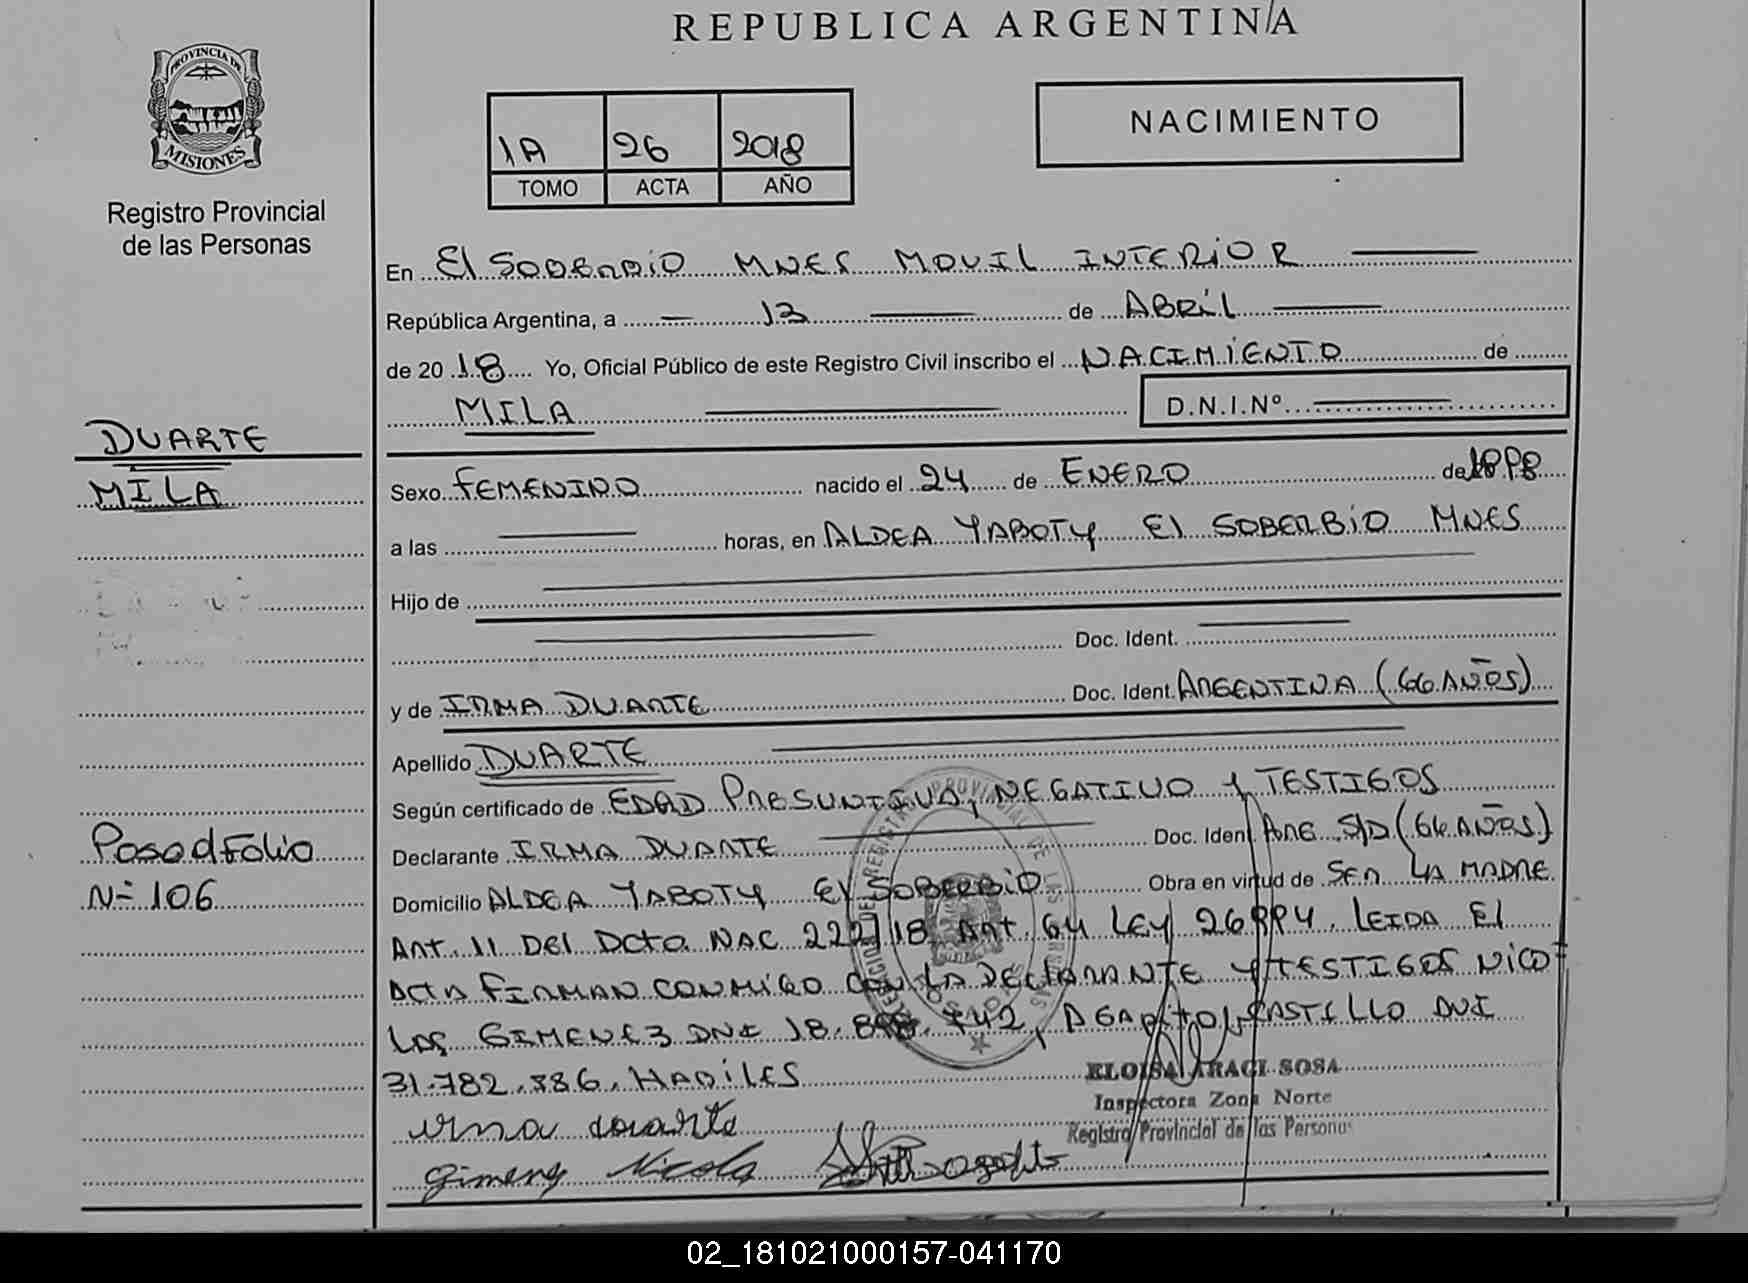 REPUBLICA ARGENTINA
PROVINCIA DE
MISIONES
Registro Provincial
de las Personas
1A 26 2018
TOMO ACTA AÑO
NACIMIENTO
En El SOBERBIO MNES MOVIL INTERIOR
República Argentina, a 13 de ABRIL
de 20 18 Yo, Oficial Público de este Registro Civil inscribo el NACIMIENTO de
MILA D.N.I.Nº
DUARTE
MILA
Sexo FEMENINO nacido el 24 de ENERO de
a las horas, en ALDEA YABOTY El SOBERBIO MNES
Hijo de
Doc. Ident.
y de IRMA DUARTE Doc. Ident. ARGENTINA (66 AÑOS)
Apellido DUARTE
Según certificado de EDAD PRESUNTIVA, NEGATIVO Y TESTIGOS
Pasa d Folio
Nº 106
Declarante IRMA DUARTE Doc. Ident. ARG S/D (66 AÑOS)
Domicilio ALDEA YABOTY El SOBERBIO Obra en virtud de SER LA MADRE
ART. 11 DEl Dcto NAC 222/18 Art. 64 LEY 26994. LEIDA El
ACTA FIRMAN CONMIGO CON LA DEClARANTE Y TESTIGOS NICO-
LAS GIMENEZ DNI 18. 742, AGAPITO CASTILLO DNI
31.782.386. HABILES
ELOISA ARACI SOSA
Inspectora Zona Norte
Registro Provincial de las Personas
irma duarte
Gimenez Nicolas
02_181021000157-041170